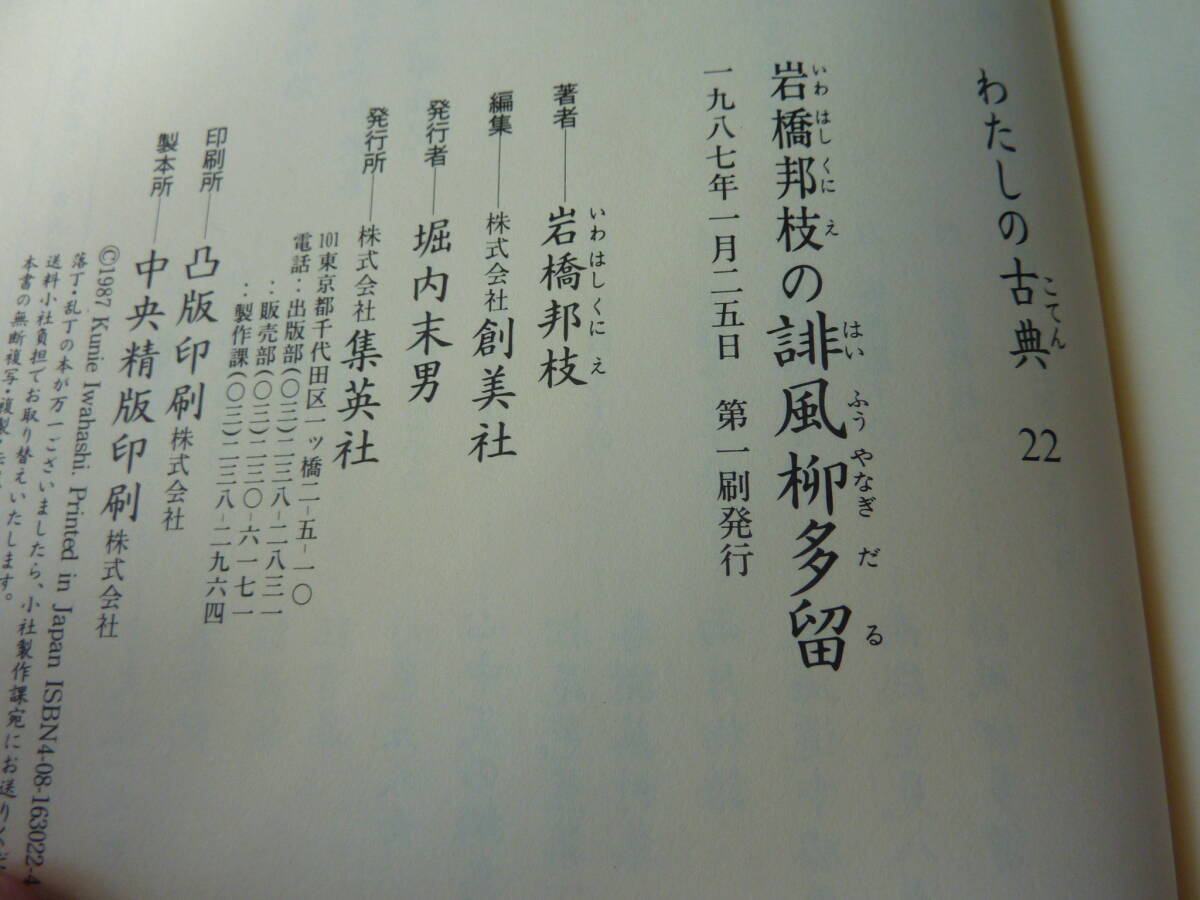 わたしの古典 22
こてん
岩橋邦枝の誹風柳多留
いわはしくにえ はいふうやなぎだる
一九八七年一月二五日 第一刷発行
著者――岩橋邦枝
いわはしくにえ
編集――株式会社創美社
発行者――堀内末男
発行所――株式会社集英社
101東京都千代田区一ッ橋二-五-一〇
電話：出版部(〇三)二三八-二八三一
：販売部(〇三)二三〇-六一七一
：製作課(〇三)二三八-二九六四
印刷所――凸版印刷株式会社
製本所――中央精版印刷株式会社
©1987 Kunie Iwahashi. Printed in Japan ISBN4-08-163022-4
落丁・乱丁の本が万一ございましたら、小社製作課宛にお送りくだ
送料小社負担でお取り替えいたします。
本書の無断複写・複製・